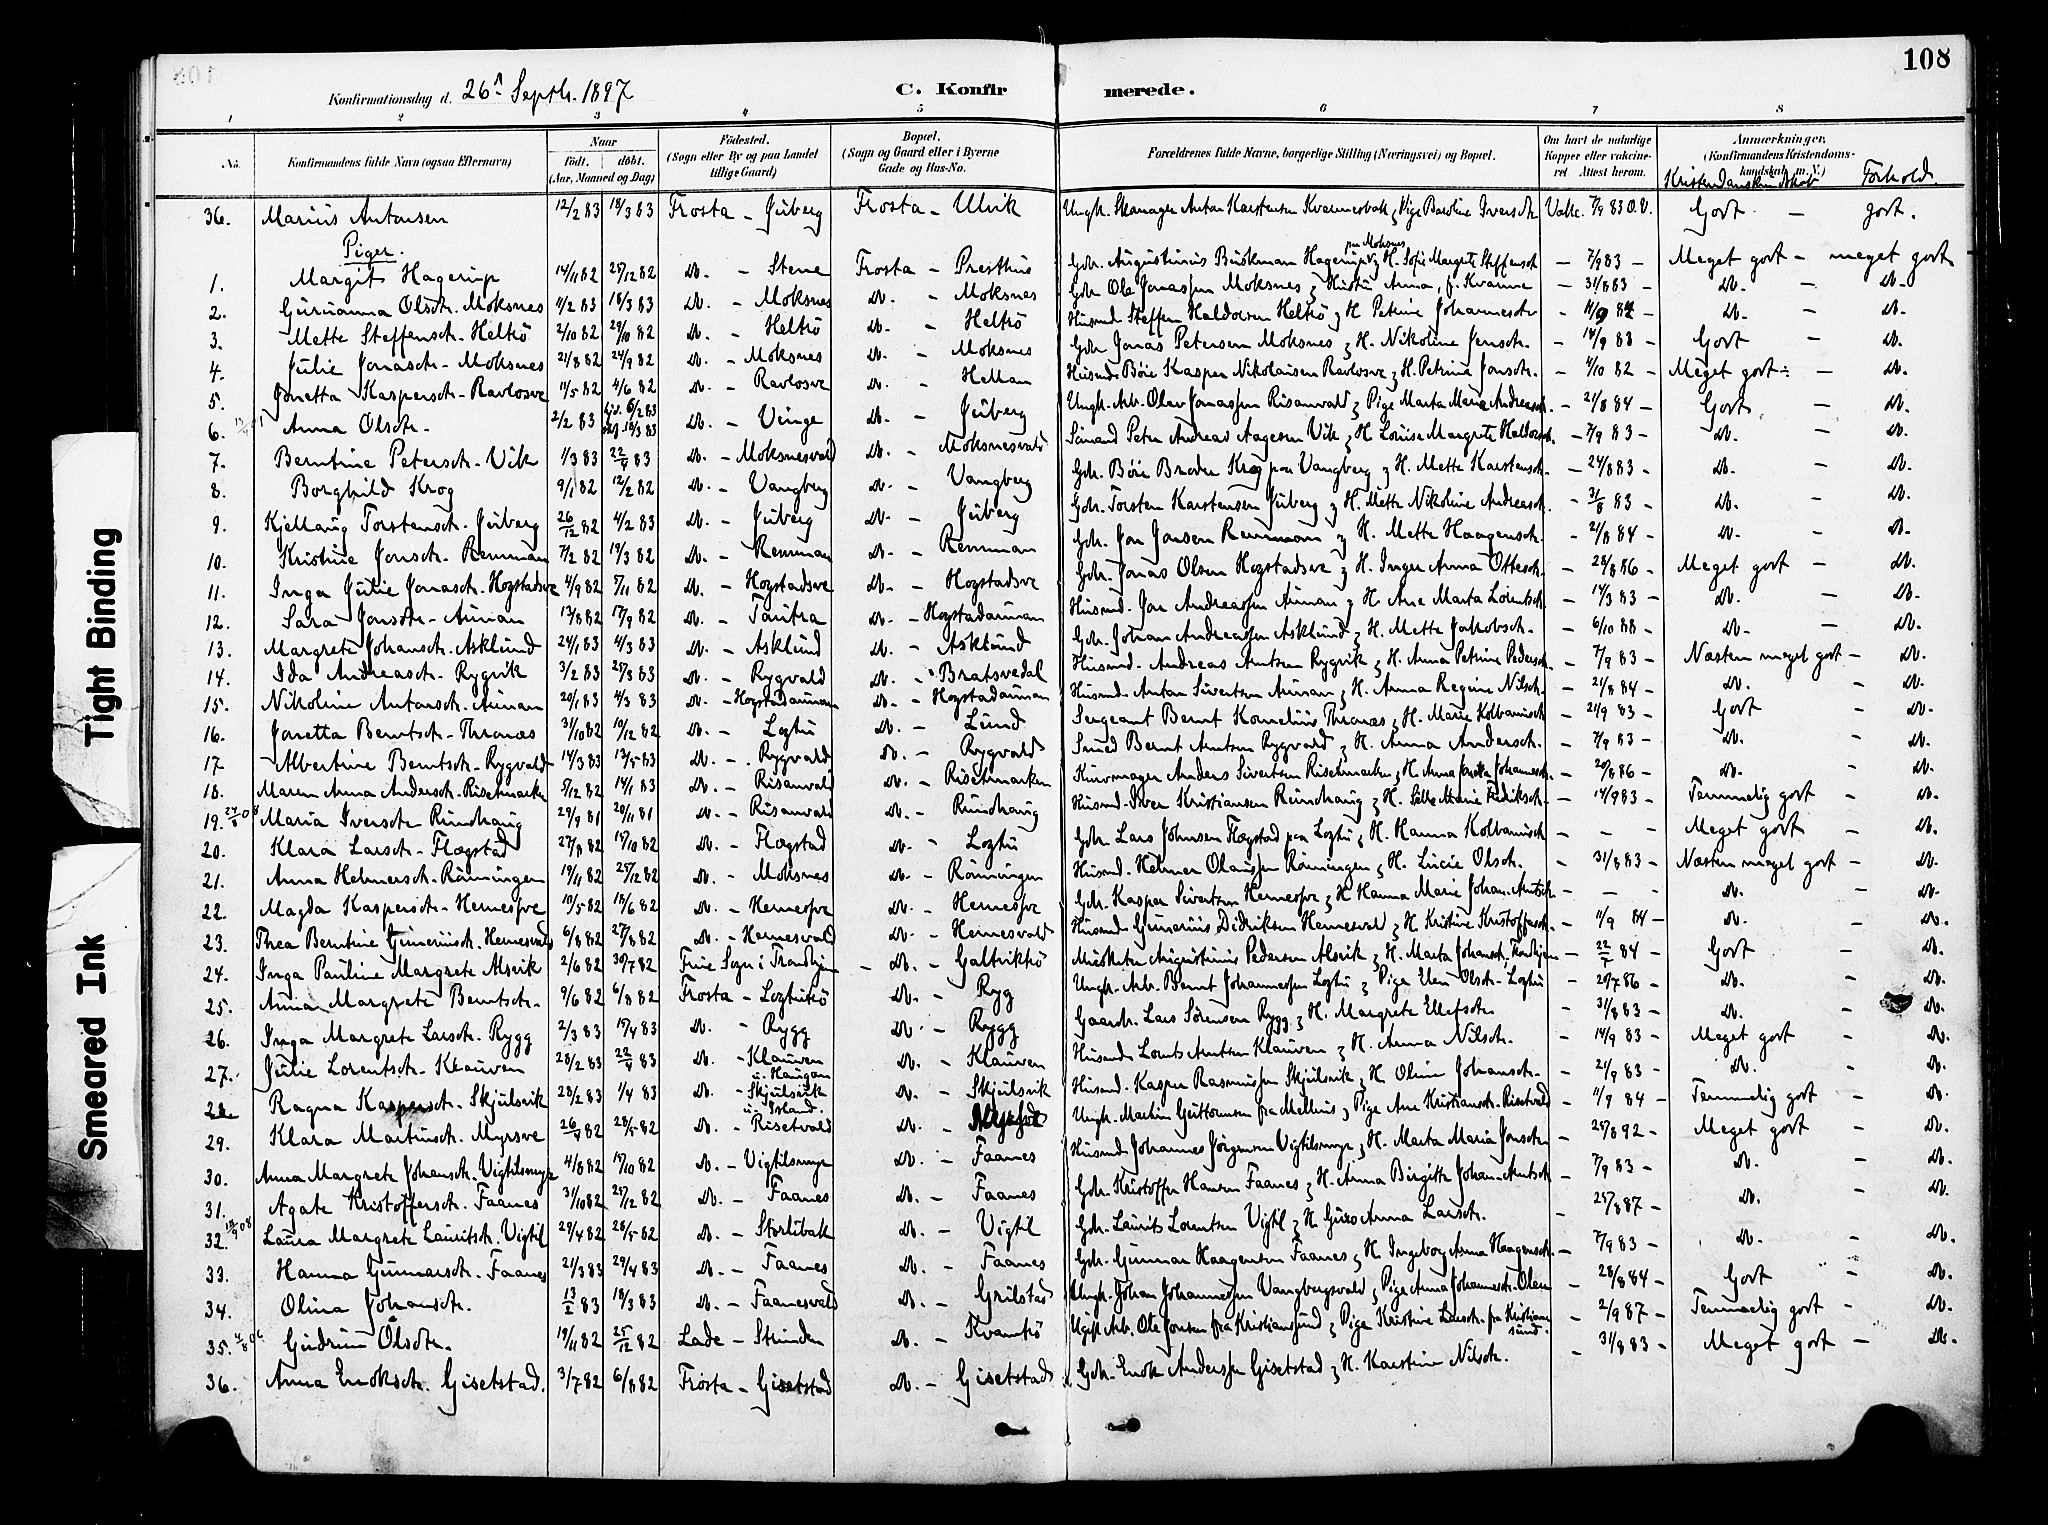 108
Konfirmationsdag d. 26de Septbr. 1897
C. Konfirmerede.
1 2 3 4 5 6 7 8
No. Konfirmandens fulde Navn (ogsaa Efternavn) Naar født. døbt. (Aar, Maaned og Dag) Fødested. (Sogn eller By og paa Landet tillige Gaard) Bopæl. (Sogn og Gaard eller i Byerne Gade og Hus-No. Forældrenes fulde Navne, borgerlige Stilling (Næringsvei) og Bopæl. Om havt de naturlige Kopper eller vakcineret Attest herom. Anmærkninger, (Konfirmandens Kristendomskundskab m. V.) Kristendomskundskab Forhold.
36. Marius Antonsen 12/2 83 18/3 83 Frosta - Juberg Frosta - Ulvik Ungk. Skomager Anton Karstensen Kvammesbak & Pige Baroline Iversdt. Vakc. 7/9 83 O.V. Godt - godt.
Piger.
1. Margit Hagerup 14/11 82 25/12 82 Do. - Stene Frosta - Presthus Gdr. Augustinus Buckman Hagerup paa Moksnes & H. Sofie Margrete Steffensdt. - 7/9 83 - Meget godt - meget godt
2. Gurianna Olsdt. Moksnes 11/2 83 18/3 83 Do. - Moksnes Do. - Moksnes Gdr. Ole Jonassen Moksnes & Hustru Anna, f. Kvamme - 31/8 83 - Do. - Do.
3. Mette Steffensdt. Helkø 2/10 82 29/10 82 Do. - Helkø Do. - Helkø Husmd. Steffen Haldorsen Helkø & H. Petrine Johannesdt. - Do. - Do.
4. Julie Jonasdt. Moksnes 21/8 82 24/9 82 Do. - Moksnes Do. - Moksnes Gdr. Jonas Petersen Moksnes & H. Nikoline Jensdt. - 14/9 83 - Godt - Do.
5. Jonetta Kaspersdt. Ravlosve 11/5 82 4/6 82 Do. - Ravlosve Do. - Hellan Husmd. Böie Kasper Nikolaisen Ravlosve & H. Petrine Jonsdt. - 4/10 82 - Meget godt - Do.
6. Anna Olsdt. 2/2 83 Do. - Vinge Do. - Juberg Ungk. Arb. Olav Jonassen Risanvald & Pige Marta Marie Andreasdt. - 21/8 84 - Godt - Do.
7. Berntine Petersdt. Vik 1/3 83 22/4 83 Do. - Moksnesvald Do. - Moksnesvald Sømand Peter Andreas Aagesen Vik & H. Louise Margrete Haldorsdt. - 7/9 83 - Do. - Do.
8. Borghild Krog 9/1 82 12/2 82 Do. - Vangberg Do. - Vangberg Gdr. Böie Broder Krog paa Vangberg & H. Mette Karstensdt. - 24/8 83 - Do. - Do.
9. Kjellaug Torstensdt. Juberg 26/12 82 4/2 83 Do. - Juberg Do. - Juberg Gdr. Torsten Karstensen Juberg & H. Mette Nikoline Andreasdt. - 31/8 83 - Do. - Do.
10. Kristine Jonsdt. Remman 7/2 82 19/3 82 Do. - Remman Do. - Remman Gdr. Jon Jonsen Remman & H. Mette Haagensdt. - 21/8 84 - Do. - Do.
11. Inga Julie Jonasdt. Hogstadsve 4/9 82 5/11 82 Do. - Hogstadsve Do. - Hogstadsve Gdr. Jonas Olsen Hogstadsve & H. Inger Anna Ottesdt. - 28/8 86 - Meget godt - Do.
12. Sara Jonsdt. Aunan 13/8 82 17/9 82 Do. - Tautra Do. - Hogstadaunan Husmd. Jon Andreassen Aunan & H. Ane Marta Lorentsdt. - 14/3 83 - Do. - Do.
13. Margrete Johansdt. Asklund 24/1 83 4/3 83 Do. - Asklund Do. - Asklund Gdr. Johan Andreassen Asklund & H. Mette Jakobsdt. - 6/10 88 - Do. - Do.
14. Ida Andreasdt. Rygvik 3/2 83 25/3 83 Do. - Rygvald Do. - Bratsvedal Husmd. Andreas Arntsen Rygvik & H. Anna Petrine Pedersdt. - 7/9 83 - Næsten meget godt - Do.
15. Nikoline Antonsdt. Aunan 20/1 83 4/3 83 Do. - Hogstadaunan Do. - Hogstadaunan Husmd. Anton Sivertsen Aunan & H. Anna Regine Nilsdt. - 21/8 84 - Do. - Do.
16. Jonetta Berntsdt. Thronæs 31/10 82 10/12 82 Do. - Logtu Do. - Lund Sergeant Bernt Kornelius Thronæs & H. Marie Kolbanusdt. - 21/9 83 - Godt - Do.
17 Albertine Berntsdt. Rygvald 14/3 83 13/5 83 Do. - Rygvald Do. - Rygvald Smed Bernt Arntsen Rygvald & H. Anna Andersdt. - 7/9 83 - Do. - Do.
18. Maren Anna Andersdt. Risetmarken 5/12 82 14/1 83 Do. - Risanvald Do. - Risetmarken Kurvmager Anders Sivertsen Risetmarken & H. Anna Jonetta Johannesdt. - 20/8 86 - Do. - Do.
19. 24/8 08 Maria Iversdt. Rundhaug 29/9 81 20/11 81 Do. - Risanvald Do. - Rundhaug Husmd. Iver Kristiansen Rundhaug & H. Marie Fredriksdt. - 14/9 83 - Temmelig godt - Do.
20. Klara Larsdt. Flægstad 27/8 82 15/10 82 Do. - Flægstad Do. - Logtu Gdr. Lars Johnsen Flægstad paa Logtu & H. Hanna Kolbanusdt. - - - Meget godt - Do.
21. Anna Helmersdt. Rønningen 19/11 82 25/12 82 Do. - Moksnes Do. - Rønningen Husmd. Helmer Olaussen Rønningen & H. Lucie Olsdt. - 31/8 83 - Næsten meget godt - Do.
22. Magda Kaspersdt. Hernesøve 10/5 82 18/6 82 Do. - Hernesøve Do. - Hernesøve Gdr. Kasper Sivertsen Hernesøve & H. Hanna Marie Johan-Arntsdt. - - - Do. - Do.
23. Thea Berntine Guneriusdt. Hernesvald 6/8 82 27/8 82 Do. - Hernesvald Do. - Hernesvald Husmd. Gunerius Didriksen Hernesvald & H. Kristine Kristoffersdt. - 11/9 84 - Do. - Do.
24. Inga Pauline Margrete Alsvik 2/6 82 30/7 82 Frue Sogn i Trondhjem - Do. - Galtviktrø Musketer Augustinus Pedersen Alsvik & H. Marta Johansdt. Trondhjem - 22/7 84 - Godt - Do.
25. Anna Margrete Berntsdt. 9/6 82 6/8 82 Frosta - Logtutrø Do. - Ryg Ungk. Arb. Bernt Johannessen Logtu & Pige Elen Olsdt. Logtu - 20/7 86 - Do. - Do.
26. Inga Margrete Larsdt. Rygg 2/3 83 15/4 83 Do. - Rygg Do. - Rygg Gaardr. Lars Sørensen Rygg & H. Margrete Ellefsdt. - 31/8 83 - Do. - Do.
27. Julie Lorentsdt. Klauven 28/2 83 22/4 83 Do. - Klauven u. Haugan Do. - Klauven Husmd. Lorents Arntsen Klauven & H. Anna Nilsdt. - 14/9 83 - Meget godt - Do.
28. Ragna Kaspersdt. Skjulsvik 28/2 83 1/4 83 Do. - Skjulsvik u. Island. Do. - Skjulsvik Husmd. Kasper Rasmussen Skjulsvik & H. Oline Johansdt. - 21/9 83 - Do. - Do.
29. Klara Martinsdt. Myrsve 26/4 82 28/5 82 Do. - Risetvald Do. - Ungk. Martin Guttormsen fra Melhus, & Pige Ane Kristiansdt. Risetvald - 11/9 84 - Temmelig godt - Do.
30. Anna Margrete Johansdt. Vigtilsmyr 4/8 82 15/10 82 Do. - Vigtilsmyr Do. - Faanes Husmd. Johannes Jörgensen Vigtilsmyr & H. Marta Maria Jonsdt. - 25/8 92 - Meget godt - Do.
31. Agate Kristoffersdt. Faanes 31/10 82 25/12 82 Do. - Faanes Do. - Faanes Gdr. Kristoffer Hansen Faanes & H. Anna Birgitte Johan-Arntsdt. - 7/9 83 - Do. - Do.
32. Laura Margrete Lauritsdt. Vigtil 29/4 82 28/5 82 Do. - Storlibak Do. - Vigtil Gdr. Laurits Lorentsen Vigtil & H. Guro Anna Larsdt. - 25/8 87 - Do. - Do.
33. Hanna Gunnarsdt. Faanes 21/3 83 29/4 83 Do. - Faanes Do. - Faanes Gdr. Gunnar Haagensen Faanes & H. Ingeborg Anna Haagensdt. - 7/9 83 - Do. - Do.
34. Olina Johansdt. 13/2 83 18/3 83 Do. - Faanesvald Do. - Grilstad Ungk. Johan Johannessen Vangbergsvald & Pige Anna Johannesdt. Olsen - 28/8 84 - Godt - Do.
35. Gudrun Olsdt. 19/11 82 25/12 82 Lade - Strinden Do. - Kvamtrø Ugift Arb. Ole Jonsen fra Kristiansund & Pige Kristine Larsdt. fra Kristiansund. - 2/9 87 - Temmelig godt - Do.
36. Anna Enoksdt. Gisetstad. 3/7 82 6/8 82 Frosta - Gisetstad Do. - Gisetstad Gdr. Enok Anderssen Gisetstad & H. Karstine Nilsdt. - 31/8 83 - Meget godt - Do.
Tight Binding
Smeared Ink